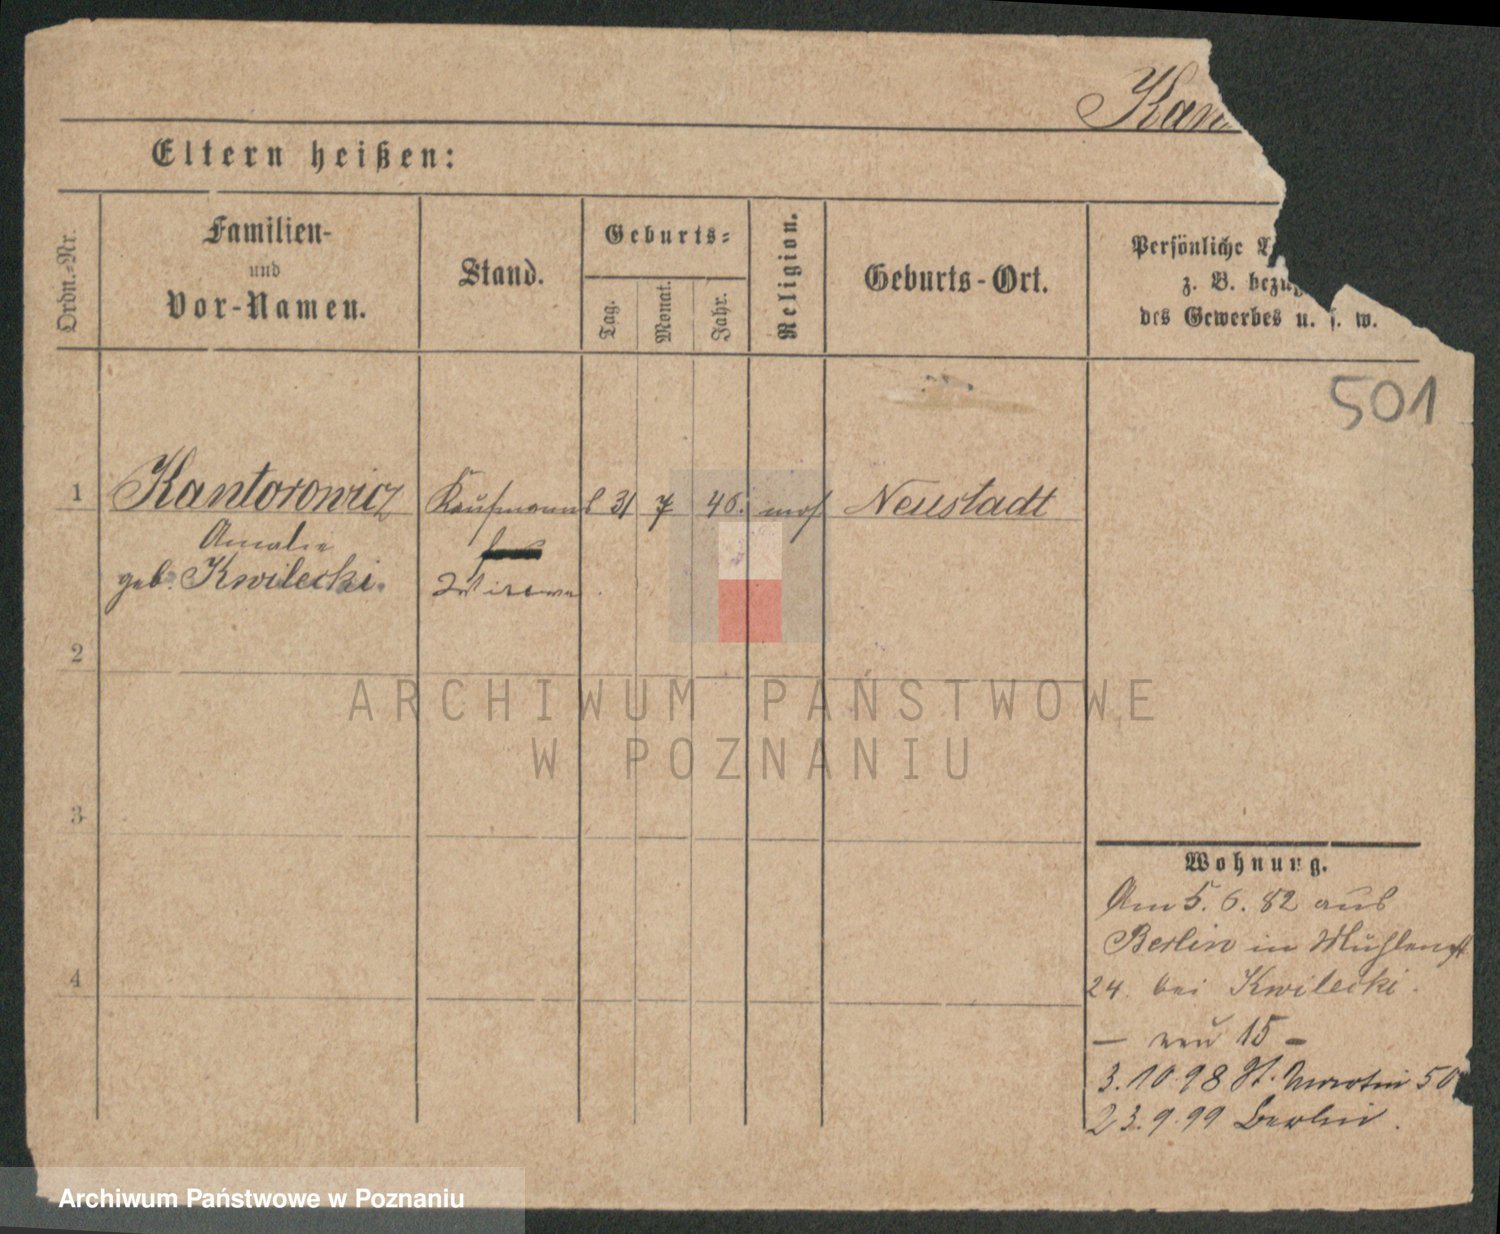 Kan
Eltern heißen:
Ordn.-Nr.
Familien-
und
Vor-Namen.
Stand.
Geburts-
Tag.
Monat.
Jahr.
Religion.
Geburts-Ort.
Persönliche
z. B. bezüg
des Gewerbes u. s. w.
501
1 Kantorowicz Kaufmanns 31 7 46. mos Neustadt
Amalie
geb. Kwilecki. Witwe
2
3
4
Wohnung.
Am 5. 6. 82 aus
Berlin in Mühlenst
24. bei Kwilecki.
— neu 15 —
3. 10 98 St. Martin 50
23. 9. 99 Berlin.
ARCHIWUM PAŃSTWOWE
W POZNANIU
Archiwum Państwowe w Poznaniu